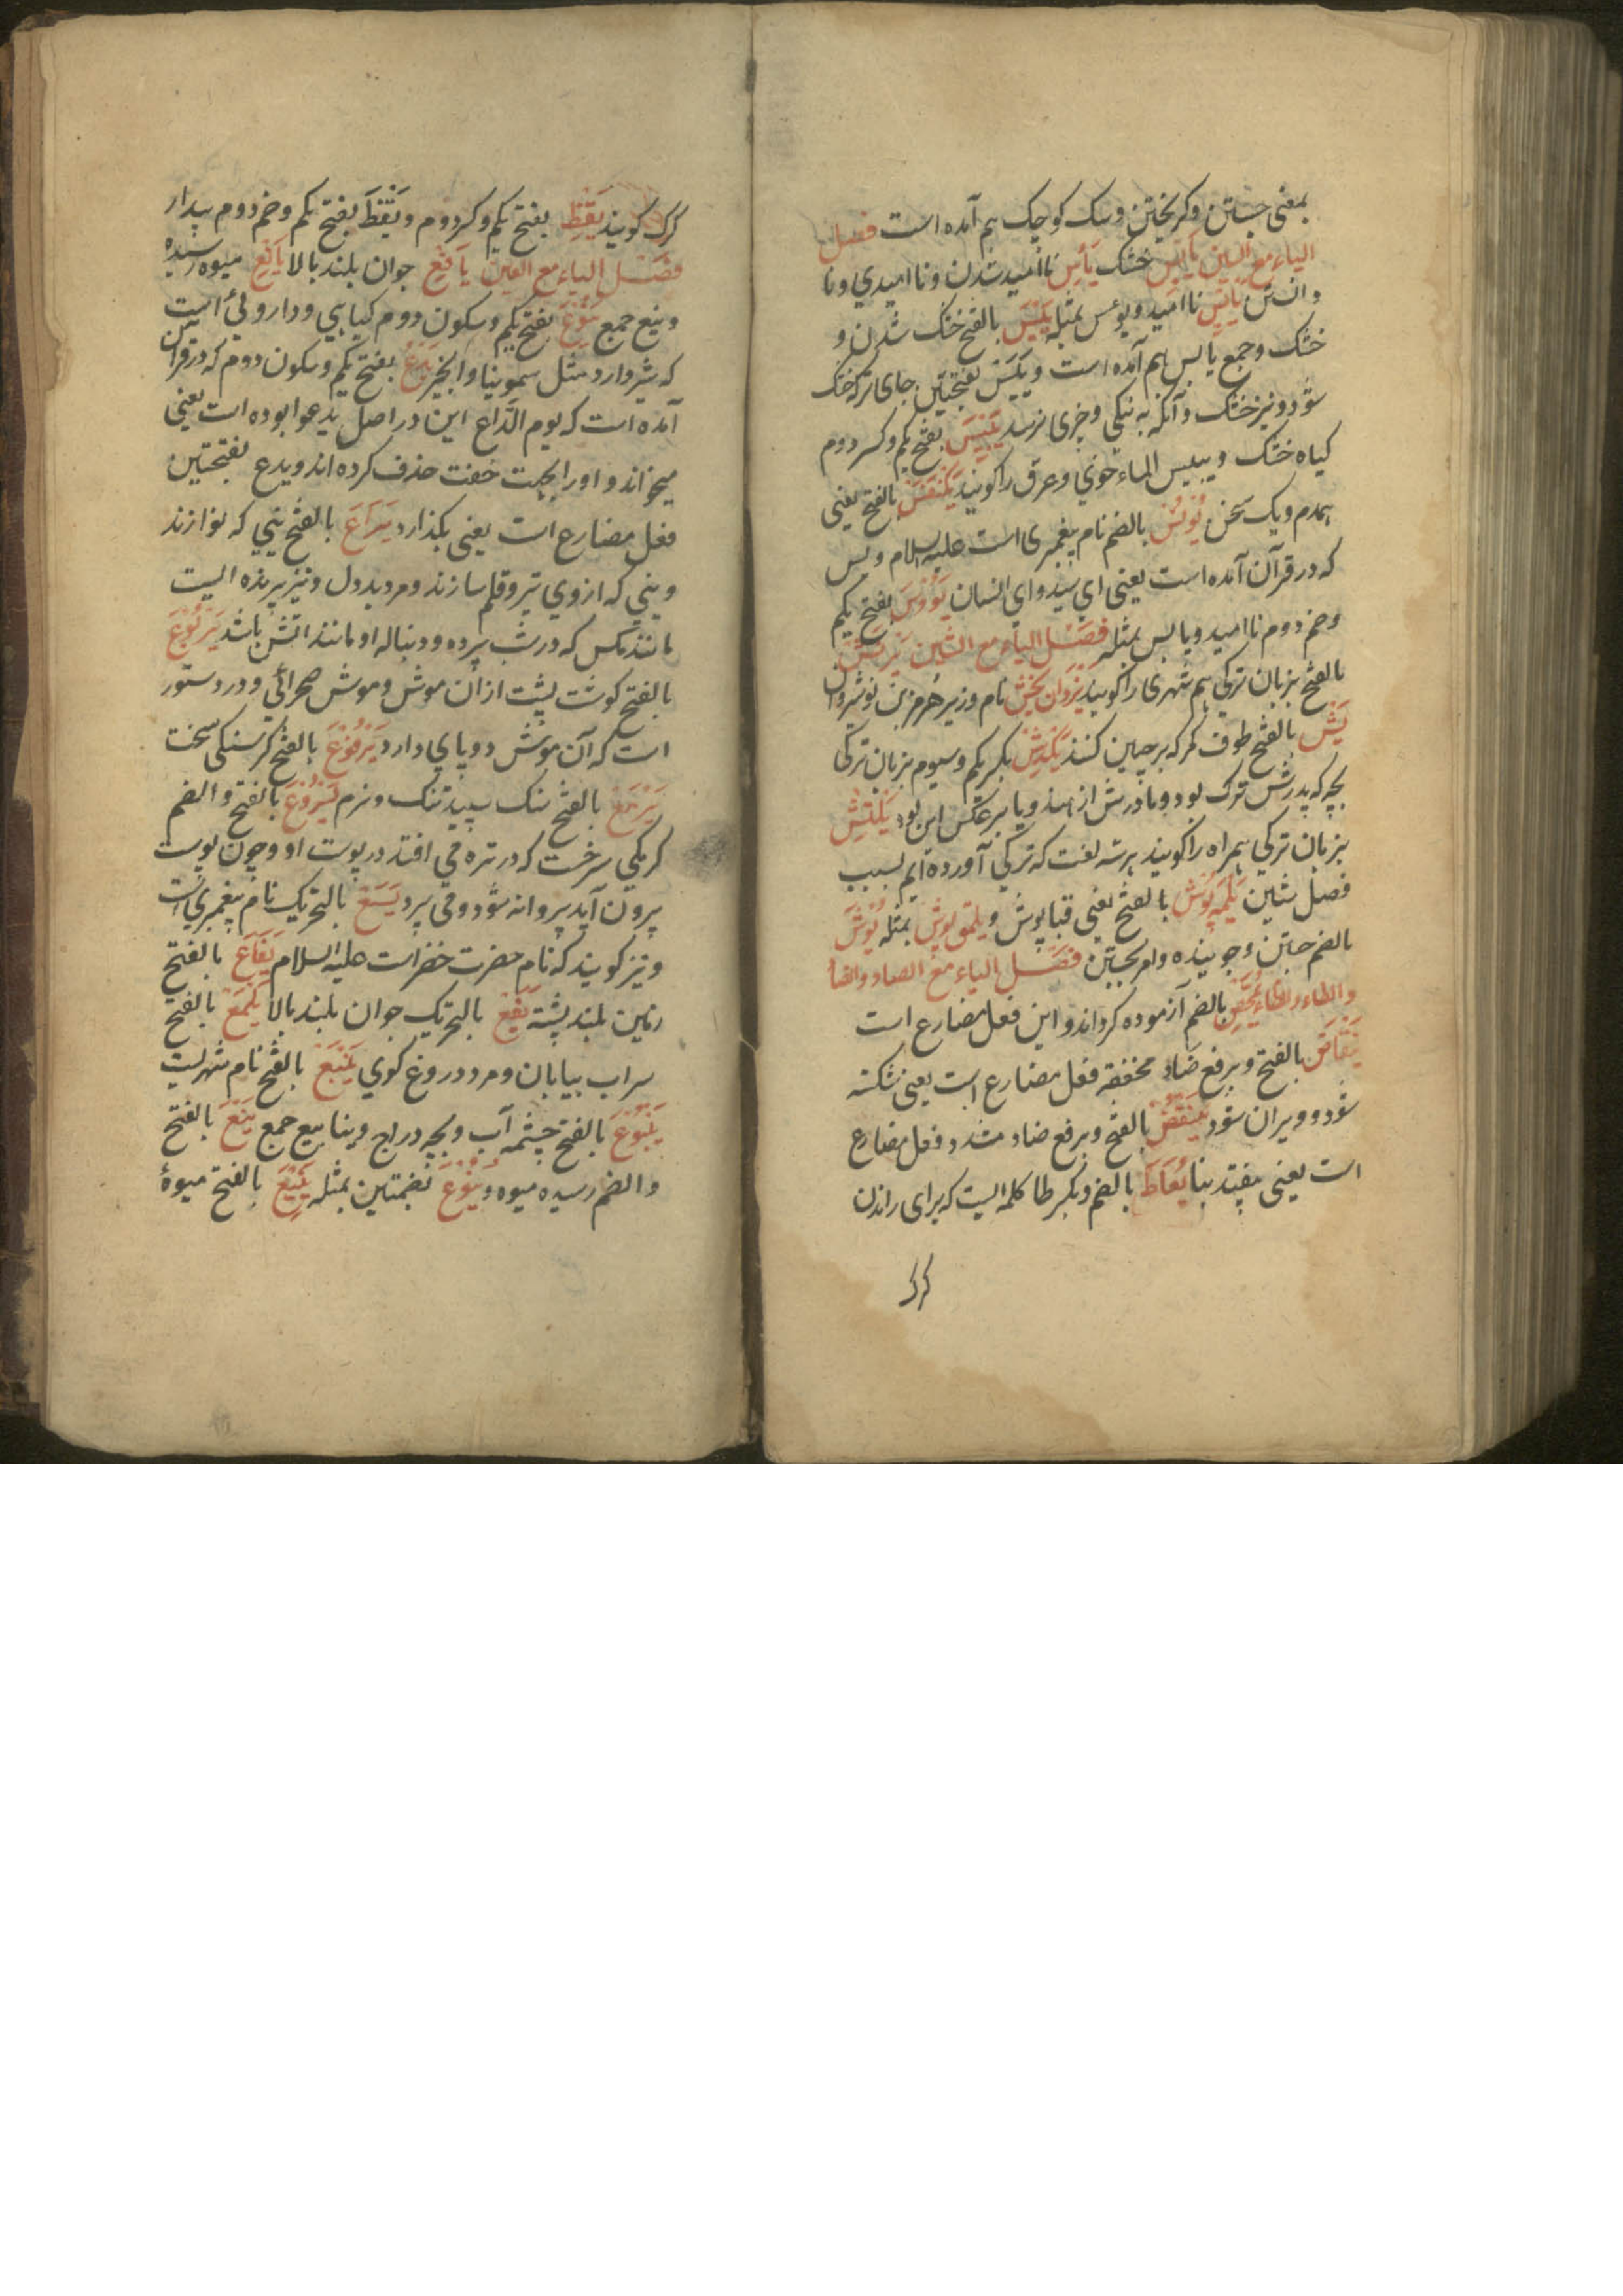 بمعنی جستن و کریختن و سک کوچک هم آمده است فصل
الیاء مع السین یابس خشک یأس ناامید شدن و ناامیدي و نا
دانستن یائس ناامید و یؤس بمثله یبس بالفتح خشک شدن و
خشک و جمع یابس هم آمده است و یبس بفتحتین جای ترکه خشک
شود و نیز خشک و آنکه به نیکی و چیزی نرسد یبیس بفتح یکم و کسر دوم
کیاه خشک و یبیس الماء خوي و عرق را کویند یکنفس بالفتح یعنی
همدم و یک سخن یونس بالضم نام پیغمبری است علیه السلام و یس
که در قرآن آمده است یعنی اي سید و اي انسان یؤوس بفتح یکم
و ضم دوم ناامید و یابس بمثله فصل الیاء مع الشین
بالفتح بزبان ترکي هم شهری را کویند یزدان بخش نام وزیر هرمز بن نوشروان
یش بالفتح طوف کر که بر جبین کنند یکدش بکسر یکم و سیوم بزبان ترکی
بچه که پدرش ترک بود و مادرش از هند و یا برعکس این بود یلتش
بزبان ترکي همراه را کویند هر سه لغت که ترکي آورده ایم بسبب
فصل شین یلمه پوش بالفتح یعنی قبا پوش و یلمق پوش بمثله یوش
بالضم جستن و جوینده و امر بجستن فصل الیاء مع الصاد والضا
والطاء والظاء یمحص بالضم آزموده کرداند و این فعل مضارع است
ینقاض بالفتح و برفع ضاد مخففه فعل مضارع است یعنی شکسته
شود و ویران شود ینقض بالفتح و برفع ضاد مشدد فعل مضارع
است یعنی بیفتد بنا یعاط بالضم و بکسر طا کلمه ایست که برای راندن
کرک
کرک کویند یقظ بفتح یکم و کسر دوم و یقظ بفتح یکم و ضم دوم بیدار
فصل الیاء مع العین یافع جوان بلند بالا یانع میوه رسیده
و ینع جمع یتوع بفتح یکم و سکون دوم کیاهي و داروئي است
که شیر دارد مثل سمونیا و انجیر یدع بفتح یکم و سکون دوم که در قرآن
آمده است که یوم الداع این در اصل یدعوا بوده است یعنی
میخواند و او را بجهت خفت حذف کرده اند و یدع بفتحتین
فعل مضارع است یعنی بکذارد یراع بالفتح نیي که نوازند
و نیي که از وي تیر و قلم سازند و مرد بددل و نیز پرنده ایست
مانند مکس که در شب پرد و دنباله او مانند اتش باشد یربوع
بالفتح کوشت پشت از ان موش و موش صحرائي و در دستور
است که آن موش دو پاي دارد یرقوع بالفتح کرسنکي سخت
یرمع بالفتح سنک سپید تنک و نرم یسروع بالفتح و الضم
کرمکي سرخست که در تره مي افتد در پوست او و چون پوست
بیرون آید پروانه شود و می پرد یسع بالتحریک نام پیغمبري است
و نیز کویند که نام حضرت خضر است علیه السلام یفاع بالفتح
زمین بلند پشته یفع بالتحریک جوان بلند بالا یلمع بالفتح
سراب بیابان و مرد دروغ کوي ینبع بالفتح نام شهریست
ینبوع بالفتح چشمه آب و بچه دراج و ینابیع جمع ینع بالفتح
و الضم رسیده میوه و ینوع بضمتین بمثله ینیع بالفتح میوهٔ